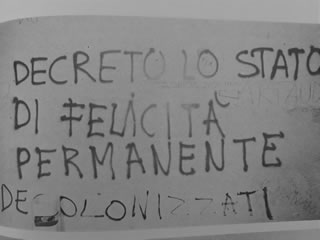 DECRETO LO STATO
DI FELICITÀ
PERMANENTE
DECOLONIZZATI